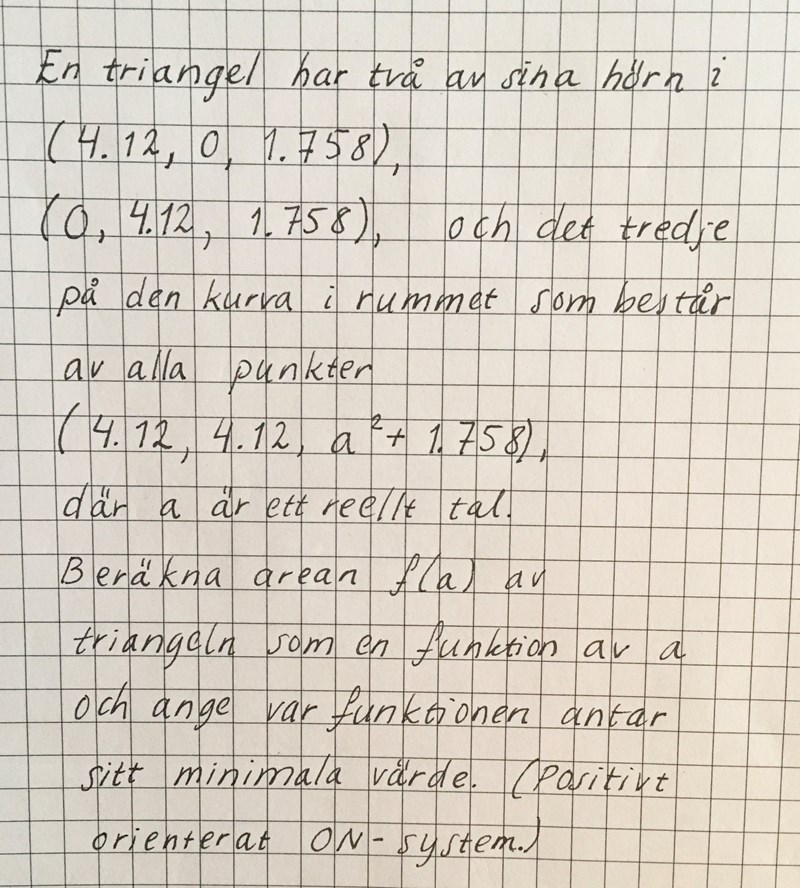 En triangel har två av sina hörn i
(4.12, 0, 1.758),
(0, 4.12, 1.758), och det tredje
på den kurva i rummet som består
av alla punkter
(4.12, 4.12, a²+ 1.758),
där a är ett reellt tal.
Beräkna arean f(a) av
triangeln som en funktion av a
och ange var funktionen antar
sitt minimala värde. (Positivt
orienterat ON-system.)